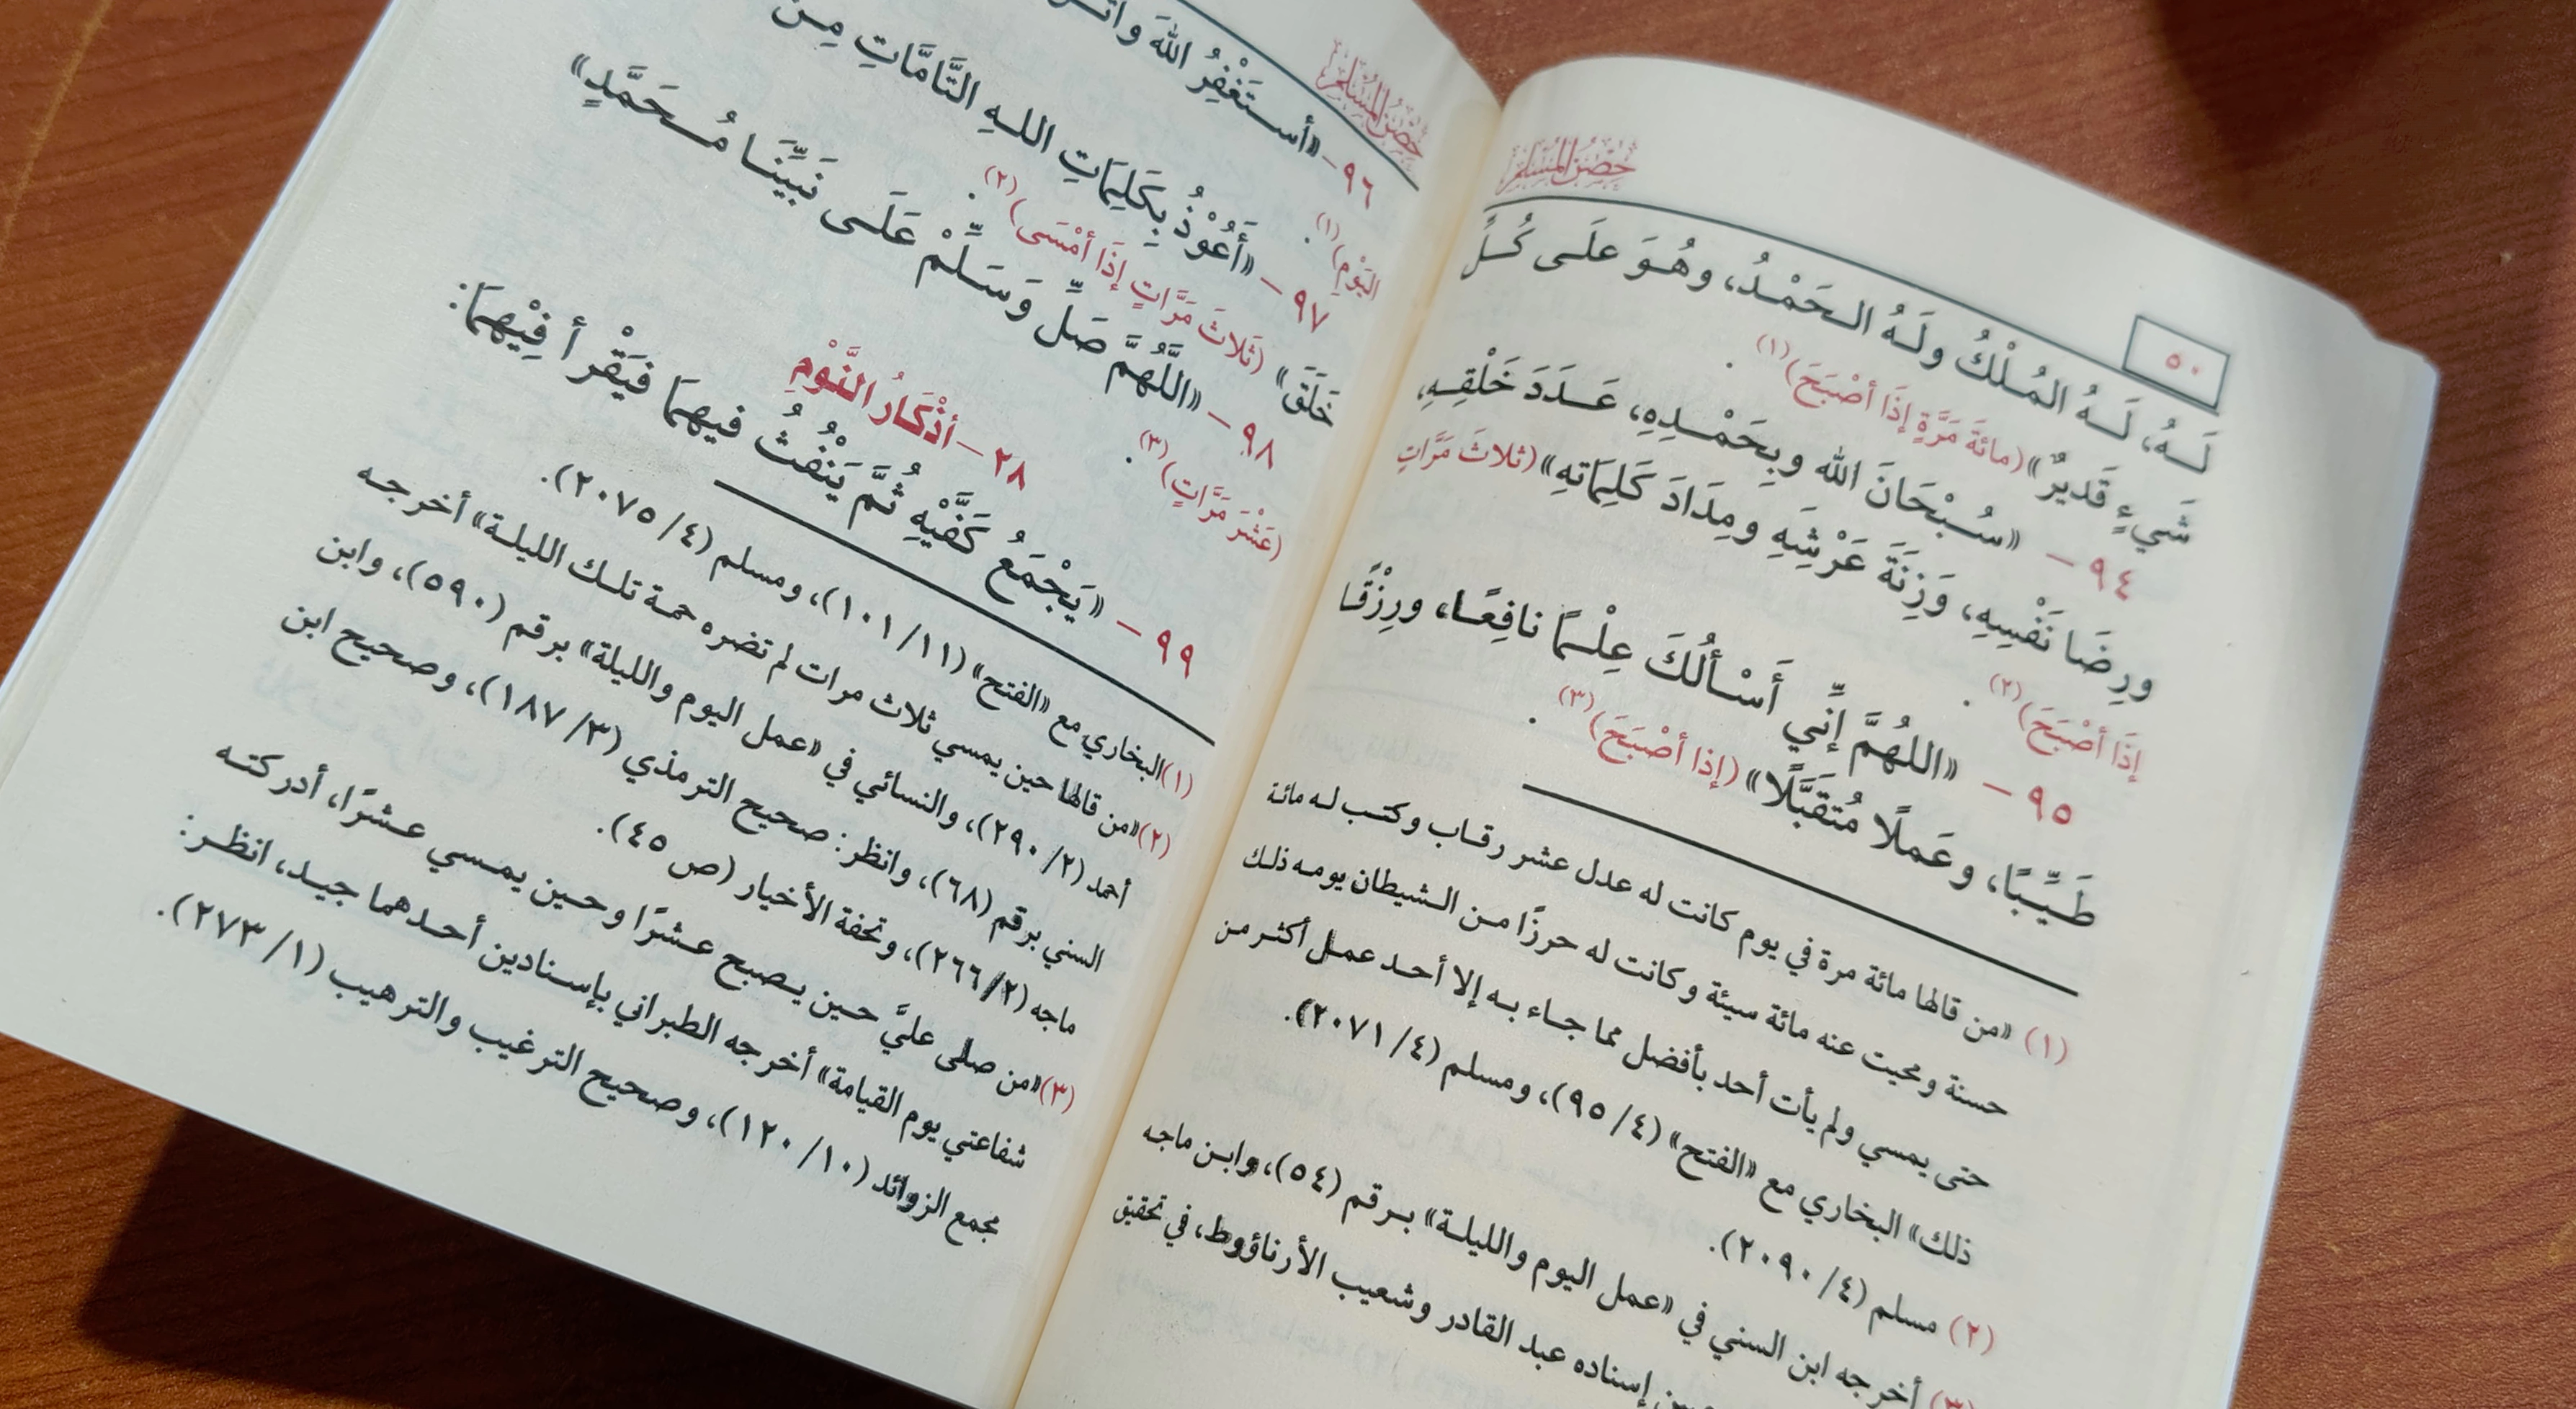 حصن المسلم
٥٠
لَـهُ، لَـهُ المُـلْكُ ولَـهُ الـحَمْـدُ، وهُـوَ علَـى كُـلِّ
شَيءٍ قَديرٌ» (مائةَ مَرَّةٍ إذَا أصْبَحَ)(١).
٩٤ – «سُـبْحَانَ الله وبِحَمْـدِهِ، عَـدَدَ خَلْقِـهِ،
ورِضَا نَفْسِهِ، وَزِنَةَ عَرْشِهِ ومِدَادَ كَلِمَاتهِ» (ثلاثَ مَرَّاتٍ
إذَا أصْبَحَ)(٢).
٩٥ – «اللهُمَّ إنِّي أَسْـألُكَ عِلْـمًا نافِعًـا، ورِزْقًـا
طَيِّبًا، وعَملًا مُتقَبَّلًا» (إذا أصْبَحَ)(٣).
(١) «من قالها مائة مرة في يوم كانت له عدل عشر رقـاب وكتـب لـه مائـة
حسنة ومحيت عنه مائة سيئة وكانت له حرزًا مـن الـشيطان يومـه ذلـك
حتى يمسي ولم يأت أحد بأفضل مما جـاء بـه إلا أحـد عمـل أكثـر مـن
ذلك» البخاري مع «الفتح» (٤/ ٩٥)، ومسلم (٤/ ٢٠٧١).
(٢) مسلم (٤/ ٢٠٩٠).
(٣) أخرجه ابن السني في «عمل اليوم والليلـة» بـرقم (٥٤)، وابـن ماجـه
إسناده عبد القادر وشعيب الأرناؤوط، في تحقيق
حصن المسلم
٩٦ – «أسـتَغْفِرُ اللهَ
اليَوْمِ)(١).
٩٧ – «أَعُوْذُ بِكَلِمَاتِ اللـهِ التَّامَّاتِ مِـن
خَلَقَ» (ثَلاثَ مَرَّاتٍ إذَا أمْسَى)(٢).
٩٨ – «اللَّهُمَّ صَلِّ وَسَـلِّمْ عَلَـى نَبيِّنَـا مُـحَمَّدٍ»
(عَشْرَ مَرَّاتٍ)(٣).
٢٨ – أذْكَارُ النَّوْمِ
٩٩ – «يَجْمَعُ كَفَّيْهِ ثُمَّ يَنْفُثُ فيهِمَا فيَقْرأ فِيْهِمَا:
(١) البخاري مع «الفتح» (١١/ ١٠١)، ومسلم (٤/ ٢٠٧٥).
(٢) «من قالها حين يمسي ثلاث مرات لم تضره حمة تلـك الليلـة» أخرجـه
أحمد (٢/ ٢٩٠)، والنسائي في «عمل اليوم والليلة» برقم (٥٩٠)، وابن
السني برقم (٦٨)، وانظر: صحيح الترمذي (٣/ ١٨٧)، وصحيح ابن
ماجه (٢/ ٢٦٦)، وتحفة الأخيار (ص ٤٥).
(٣) «من صلى عليَّ حـين يـصبح عـشرًا وحـين يمـسي عـشرًا، أدركتـه
شفاعتي يوم القيامة» أخرجه الطبراني بإسـنادين أحـدهما جيـد، انظـر:
مجمع الزوائد (١٠/ ١٢٠)، وصحيح الترغيب والترهيب (١/ ٢٧٣).